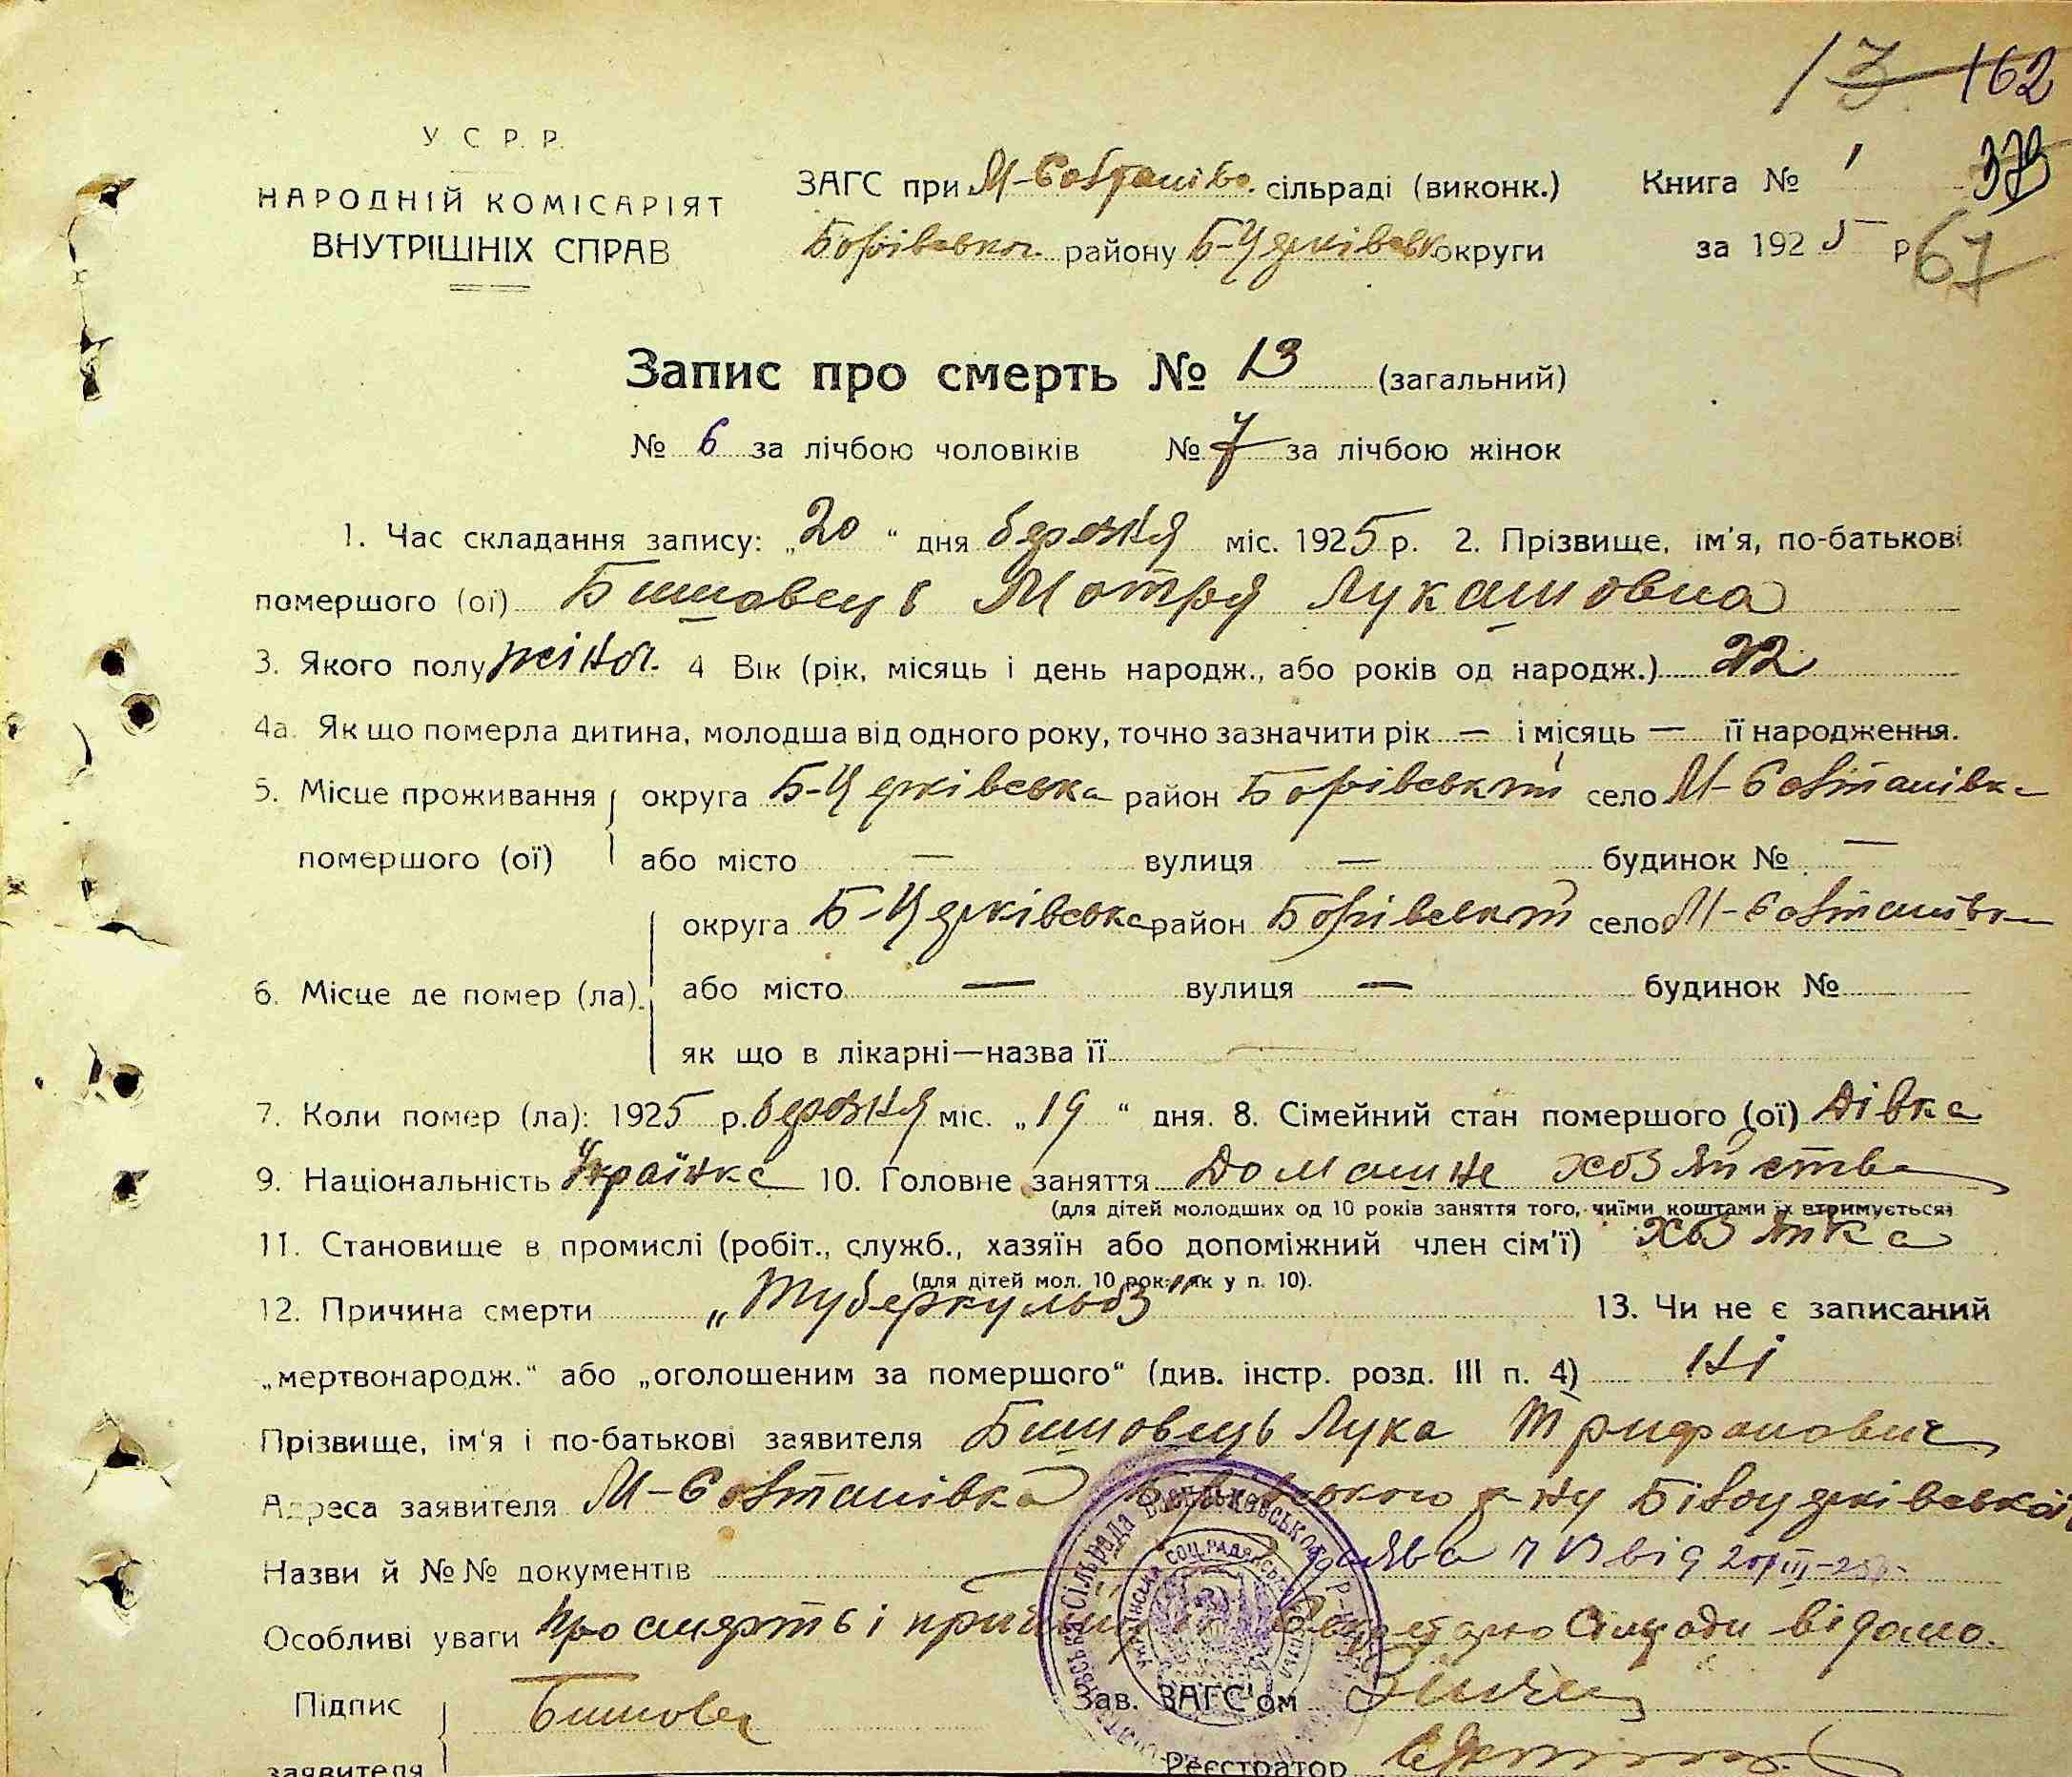 13 162
У С Р. Р.
НАРОДНІЙ КОМІСАРІЯТ
ВНУТРІШНІХ СПРАВ
ЗАГС при М-Єовтанівс. сільраді (виконк.)
район у Б-Церківськ округи
Книга № 1 379
за 1925 р 67
Запис про смерть № 13 (загальний)
№ 6 за лічбою чоловіків № 7 за лічбою жінок
1. Час складання запису: „20“ дня березня міс. 1925 р. 2. Прізвище, ім'я, по-батькові
помершого (ої) Бишовець Мотря Лукашовна
3. Якого полу жіноч. 4 Вік (рік, місяць і день народж., або років од народж.) 22
4а. Як що померла дитина, молодша від одного року, точно зазначити рік — і місяць — її народження.
5. Місце проживання округа Б-Церківська район село
помершого (ої) або місто — вулиця — будинок № —
округа Б-Церківська район село
6. Місце де помер (ла). або місто — вулиця — будинок №
як що в лікарні—назва її —
7. Коли помер (ла): 1925 р. березня міс. „19“ дня. 8. Сімейний стан помершого (ої) Дівка
9. Національність Українка 10. Головне заняття Домашнє хозяйство
(для дітей молодших од 10 років заняття того, чиїми коштами їх втримується)
11. Становище в промислі (робіт., служб., хазяїн або допоміжний член сім'ї) хозяйка
(для дітей мол. 10 рок. як у п. 10).
12. Причина смерти „Туберкульоз" 13. Чи не є записаний
„мертвонародж.“ або „оголошеним за помершого“ (див. інстр. розд. III п. 4) Ні
Прізвище, ім'я і по-батькові заявителя Бишовець Лука Трифанович
Адреса заявителя р-ну Білоцерківської
Назви й №№ документів Заява 13 від 20/III-25р.
Особливі уваги про смерть і Секретарю Сільради відомо.
Підпис Бишовец Зав. ЗАГС'ом
заявителя Реєстратор